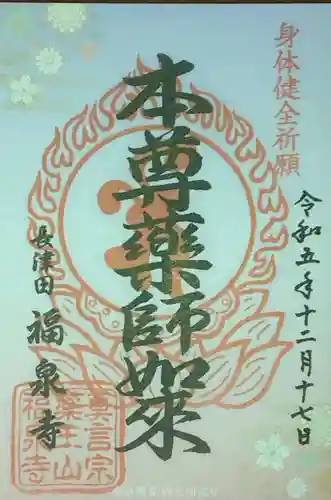 身体健全祈願
令和五年十二月十七日
本尊薬師如来
長津田 福泉寺
真言宗
薬王山
福泉寺